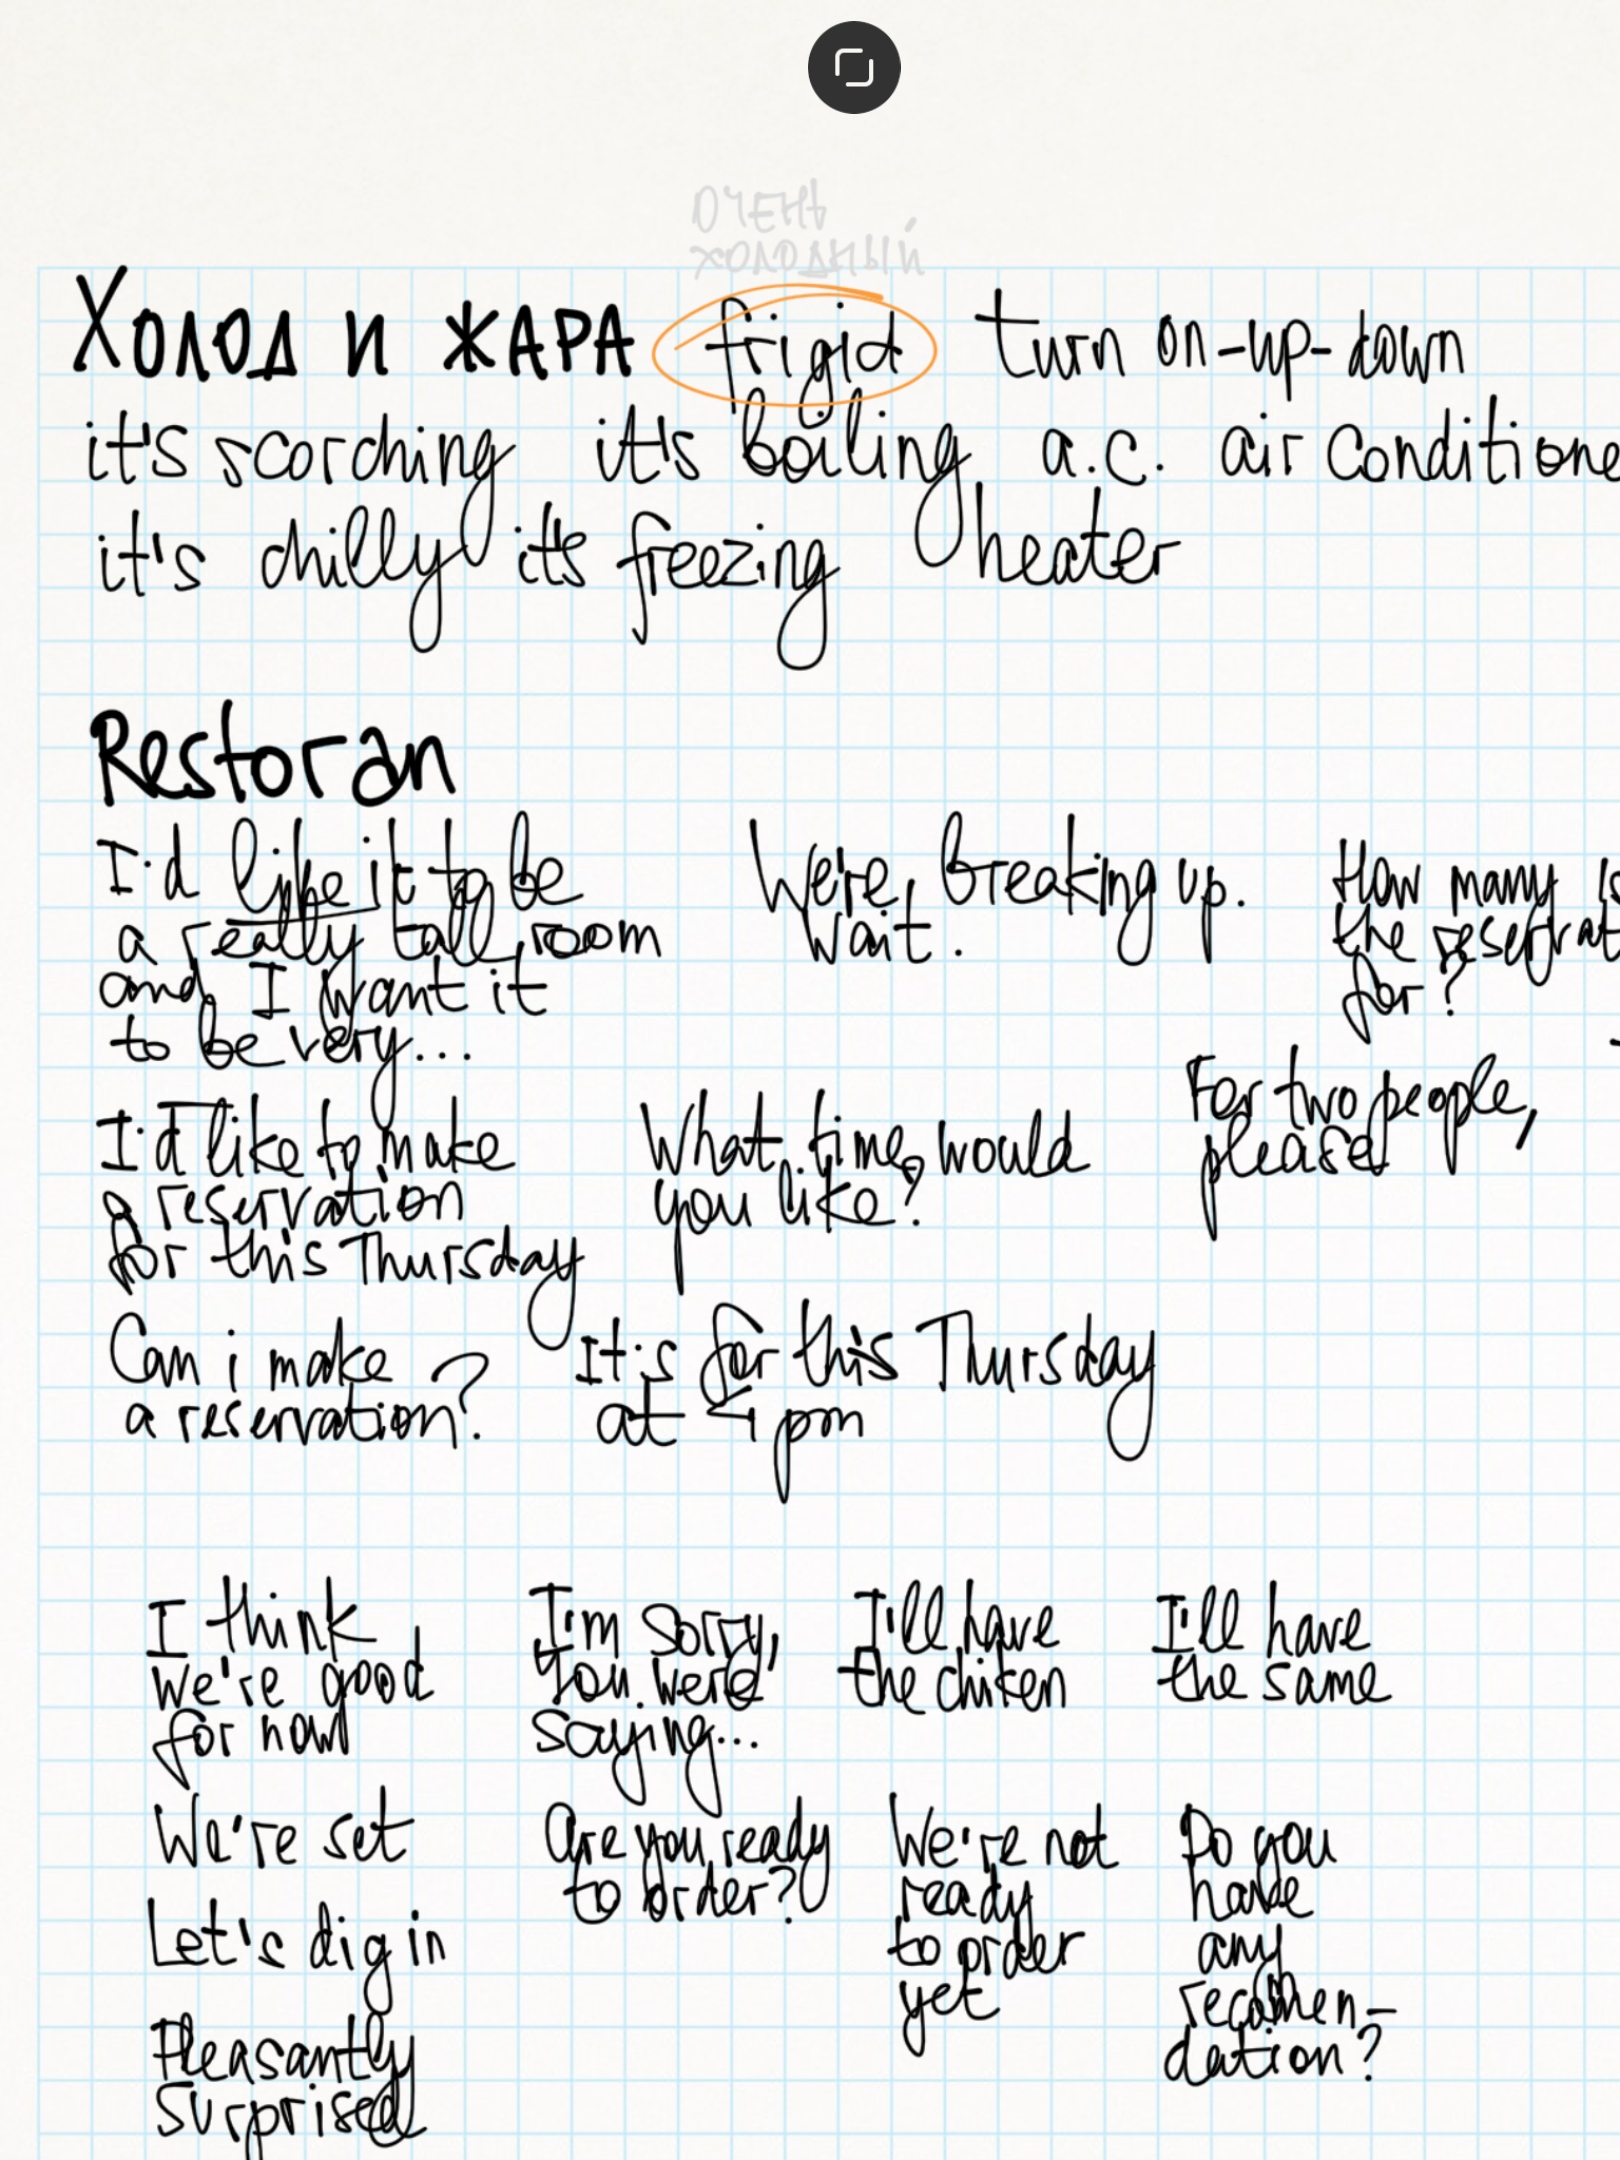 ОЧЕНЬ
ХОЛОДНЫЙ
Холод и жара frigid turn on-up-down
it's scorching it's boiling a.c. air conditione
it's chilly it's freezing heater
Restoran
I'd like it to be
a really tall room
and I want it
to be very...
We're breaking up.
Wait.
How many is
the reservat
for?
For two people,
please
I'd like to make
a reservation
for this Thursday
What time would
you like?
Can i make
a reservation?
It is for this Thursday
at 4 pm
I think
we're good
for now
I'm sorry,
You were
saying...
I'll have
the chiken
I'll have
the same
We're set
Are you ready
to order?
We're not
ready
to order
yet
Do you
have
any
recommen-
dation?
Let's dig in
Pleasantly
surprised